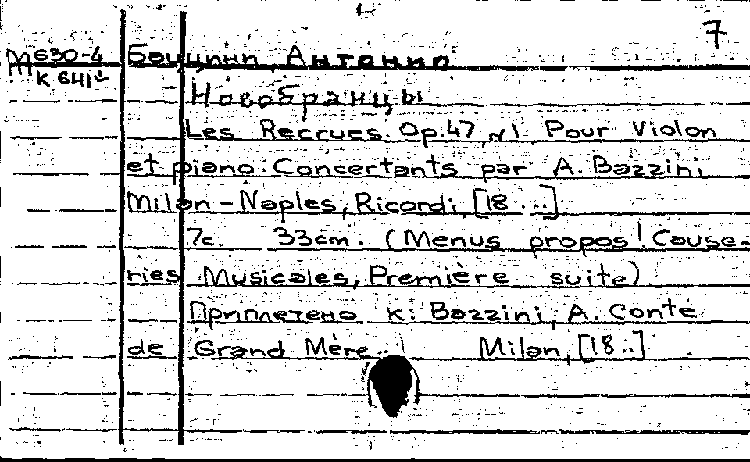 7
М 630-4 Баццини, Антонио
К 641
Новобранцы
Les Recrues. Op.47, N1. Pour Violon
et piano. Concertants par A. Bazzini
Milan - Naples, Ricordi, [18...]
7c. 33cm. (Menus propos! Cause-
ries Musicales, Première suite)
Приплетено к: Bazzini, A. Conte
de Grand Mère... Milan, [18..]